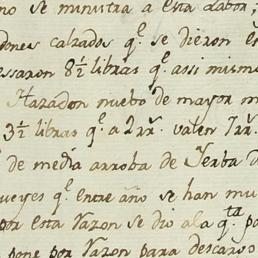 no se ministra a esta Labor,
dones calzados q.e se dieron
esaron 8½ libras q.e assi mismo
Hazadon nuebo de mayor m
3½ libras q.e a 2rr.s valen 7rr.s
de media arroba de Yerba d
ueyes q.e entre año se han mu
por esta razon se dio a la q.ta p
pone por razon para descargo